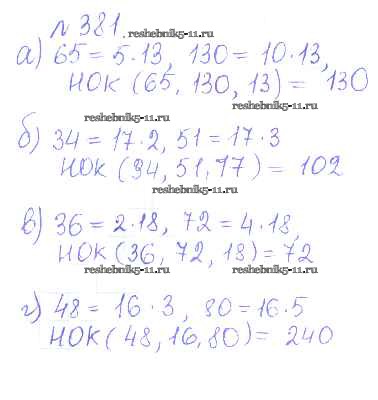 № 381.
reshebnik5-11.ru
а) 65 = 5·13, 130 = 10·13,
reshebnik5-11.ru
НОК (65, 130, 13) = 130
reshebnik5-11.ru
reshebnik5-11.ru
б) 34 = 17·2, 51 = 17·3
НОК (34, 51, 17) = 102
reshebnik5-11.ru
в) 36 = 2·18, 72 = 4·18,
НОК (36, 72, 18) = 72
reshebnik5-11.ru reshebnik5-11.ru
г) 48 = 16·3, 80 = 16·5
НОК (48, 16, 80) = 240